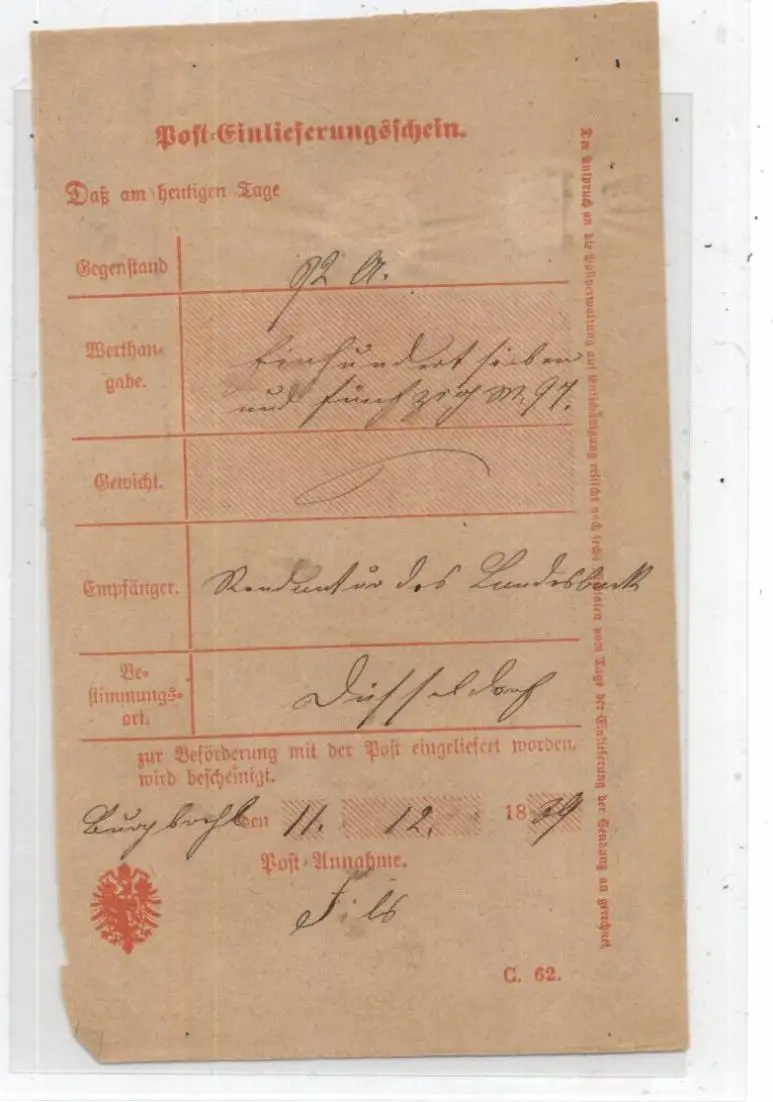 Post-Einlieferungsschein.
Daß am heutigen Tage
Gegenstand
Werthan-
gabe.
Einhundert sieben
und fünfzig M. 97.
Gewicht.
Empfänger.
Rendantur der Landesbank
Be-
stimmungs-
ort.
Düsseldorf
zur Beförderung mit der Post eingeliefert worden,
wird bescheinigt.
Burgbrohl den 11. 12. 18
Post-Annahme.
Fils
C. 62.
Der Anspruch an die Postverwaltung auf Entschädigung erlischt nach sechs Monaten vom Tage der Einlieferung der Sendung an gerechnet.